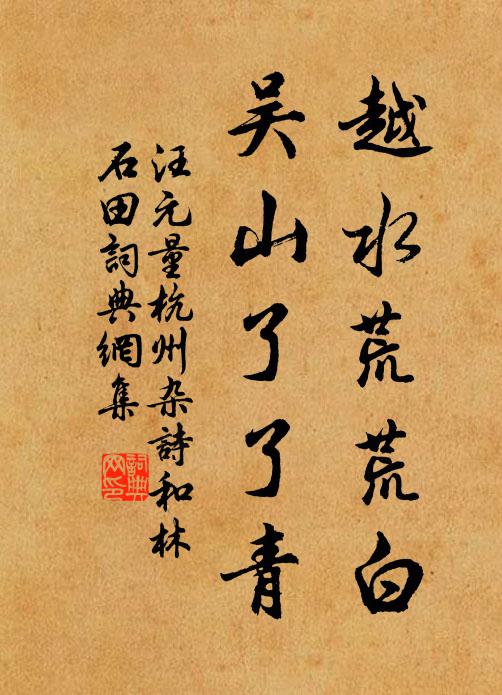 越水荒荒白
吴山了了青
汪元量杭州杂詩和林
石田詞典網集
詞典
网印